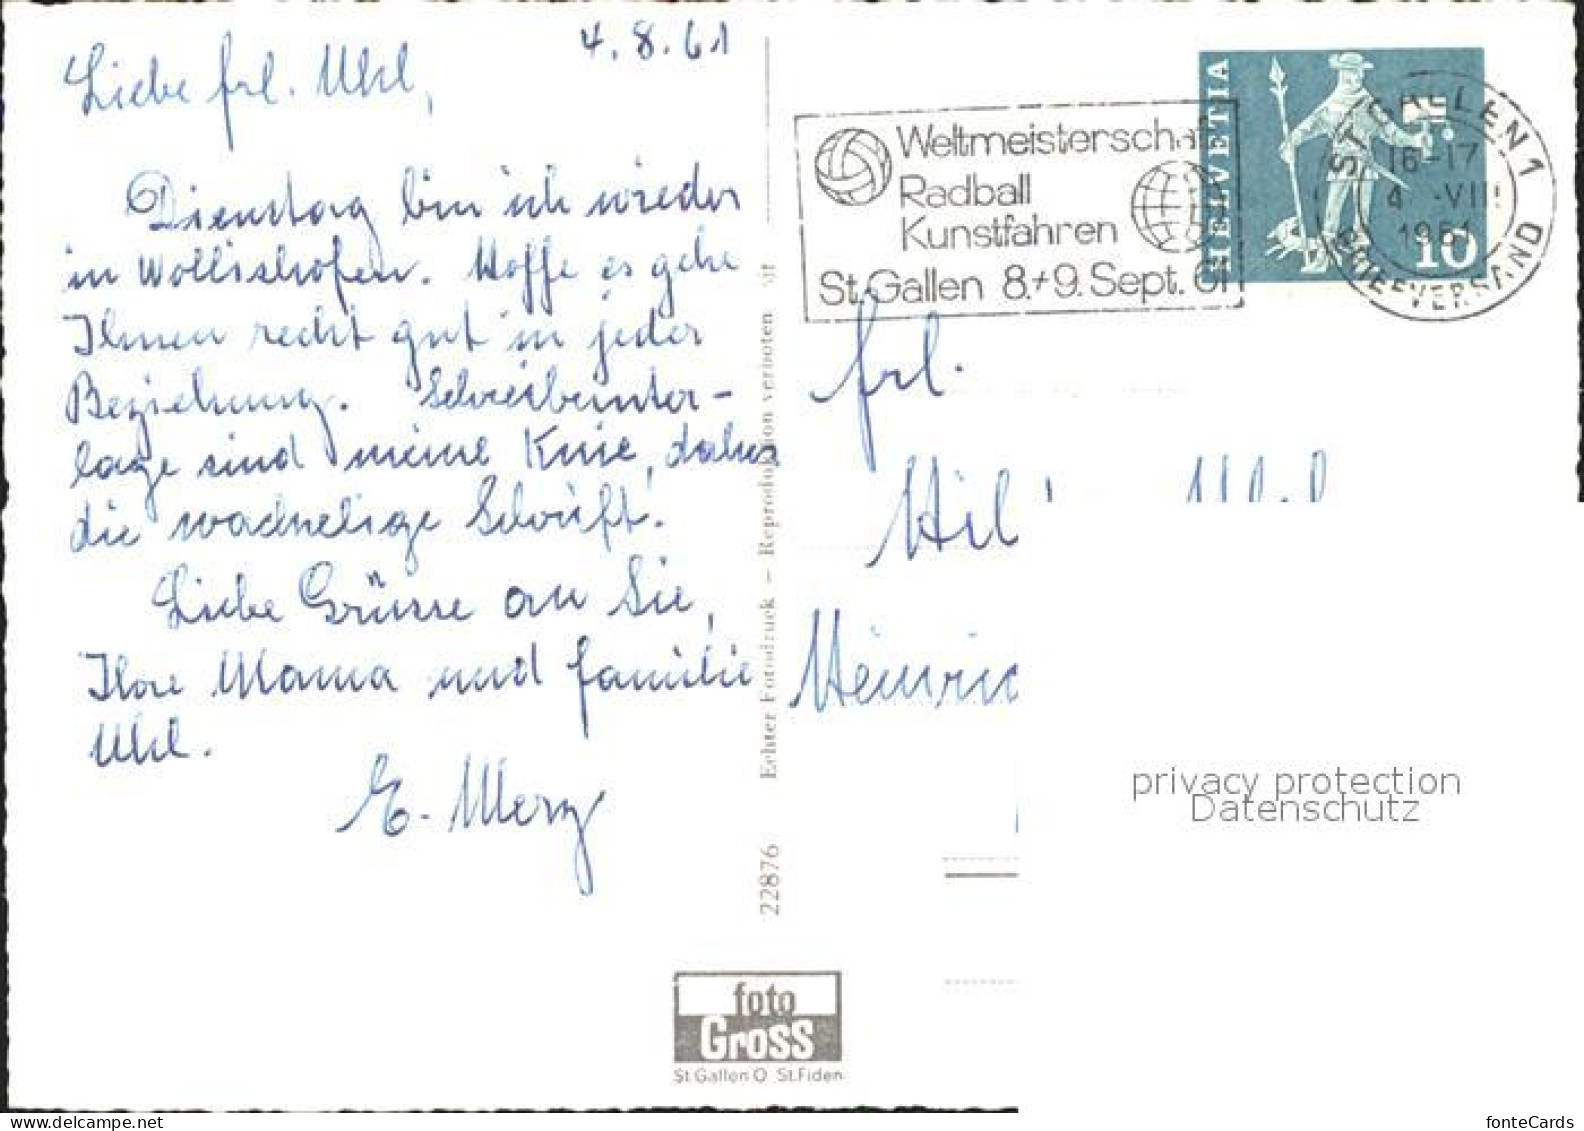 4.8.61
Liebe Frl. Uhl,
Dienstag bin ich wieder
in Wollishofen. Hoffe es gehe
Ihnen recht gut in jeder
Beziehung. Schreibunter-
lage sind meine Knie, daher
die wackelige Schrift!
Liebe Grüsse an Sie,
Ihre Mama und Familie
Uhl.
E. Merz
Echter Fotodruck – Reproduktion verboten
22876
foto
Gross
St.Gallen O St.Fiden
Weltmeisterschaf
Radball
Kunstfahren
St.Gallen 8.+9.Sept.61
HELVETIA
10
ST GALLEN 1
16-17
4 -VIII
1961
BRIEFVERSAND
Frl.
Hil
Heinric
privacy protection
Datenschutz
www.delcampe.net
fonteCards